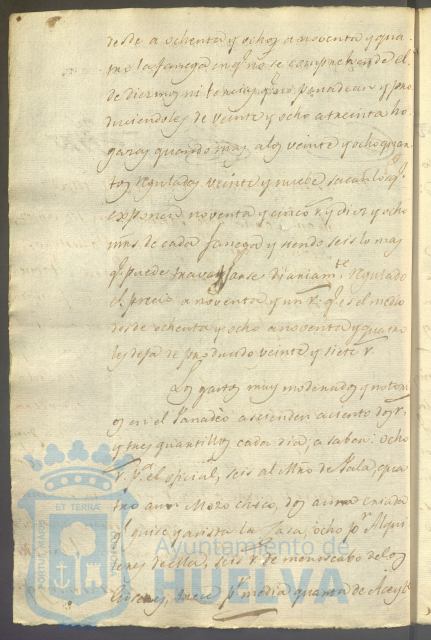 desde a ochenta y ocho, a noventa y qua-
tro la fanega en q.e no se comprehende el
de diezmos ni tercias, q.e no panadean y pro
duciendoles de veinte y ocho a treinta ho-
gazas quando mas a los veinte y ocho
tos regulados veinte y nueve sacan los q.e
exponen noventa y cinco r.s y diez y ocho
mrs de cada fanega y siendo seis lo mas
q.e puede travajarse diariam.te regulado
el precio a noventa y un r.s q.e es el medio
desde ochenta y ocho a noventa y quatro
les deja de producido veinte y siete r.s
Los gastos muy moderados y notori
os en el Panadeo ascienden a ciento dos r.s
y tres quartillos cada dia; a saber: ocho
r.s p.a el oficial, seis al Mro de Pala, qua
tro a un Mozo chico, dos a una criada
q.e guise y asista la Casa, ocho p.r Alqui
leres de ella, seis r.s de menoscabo de los
trece p.r media quarta de Aceyte
ET TERRAE
PORTUS MARIS
CUSTODIA
Ayuntamiento de
HUELVA